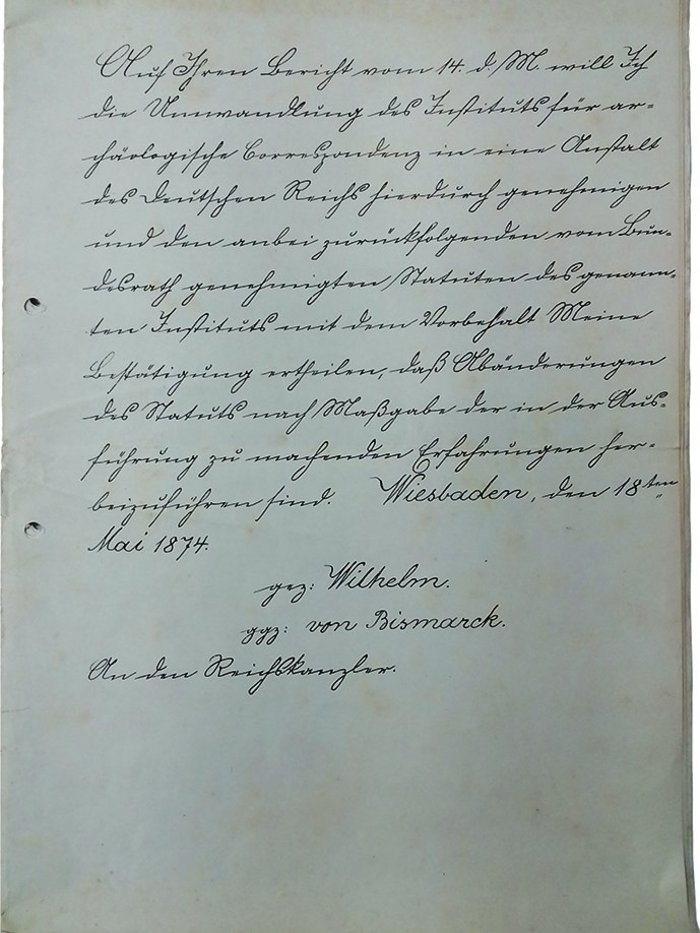 Auf Ihren Bericht vom 14. d. M. will Ich
die Umwandlung des Instituts für ar-
chäologische Correspondenz in eine Anstalt
des Deutschen Reichs hierdurch genehmigen
und den anbei zurückfolgenden vom Bun-
desrath genehmigten Statuten des genann-
ten Instituts mit dem Vorbehalt Meine
Bestätigung ertheilen, daß Abänderungen
des Statuts nach Maßgabe der in der Aus-
führung zu machenden Erfahrungen her-
beizuführen sind. Wiesbaden, den 18ten
Mai 1874.
gez: Wilhelm.
ggz: von Bismarck.
An den Reichskanzler.